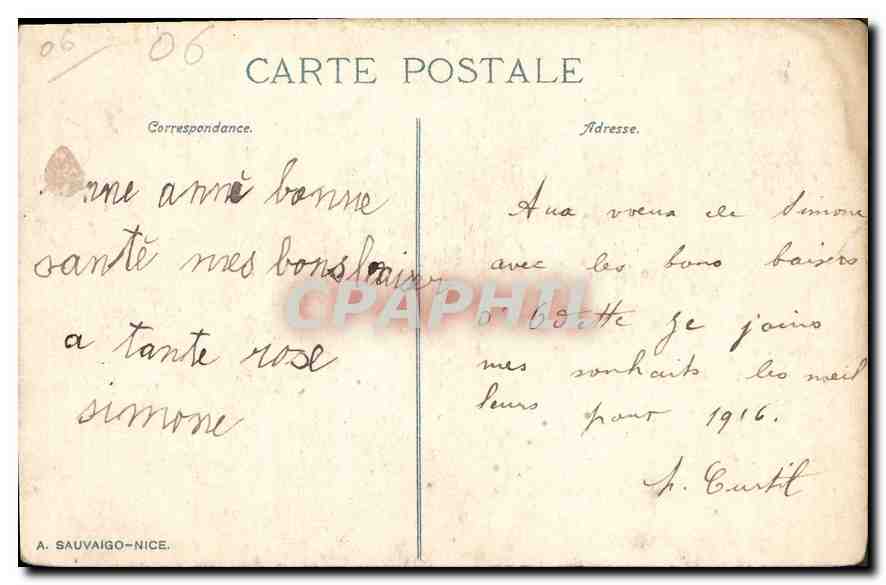 06 06
CARTE POSTALE
Correspondance.
nne anné bonne
santé mes bons baiser
a tante rose
simone
Adresse.
Aux voeux de Simone
avec les bons baisers
d'Odette je joins
mes souhaits les meil
leurs pour 1916.
Curtil
CPAPHIL
A. SAUVAIGO-NICE.